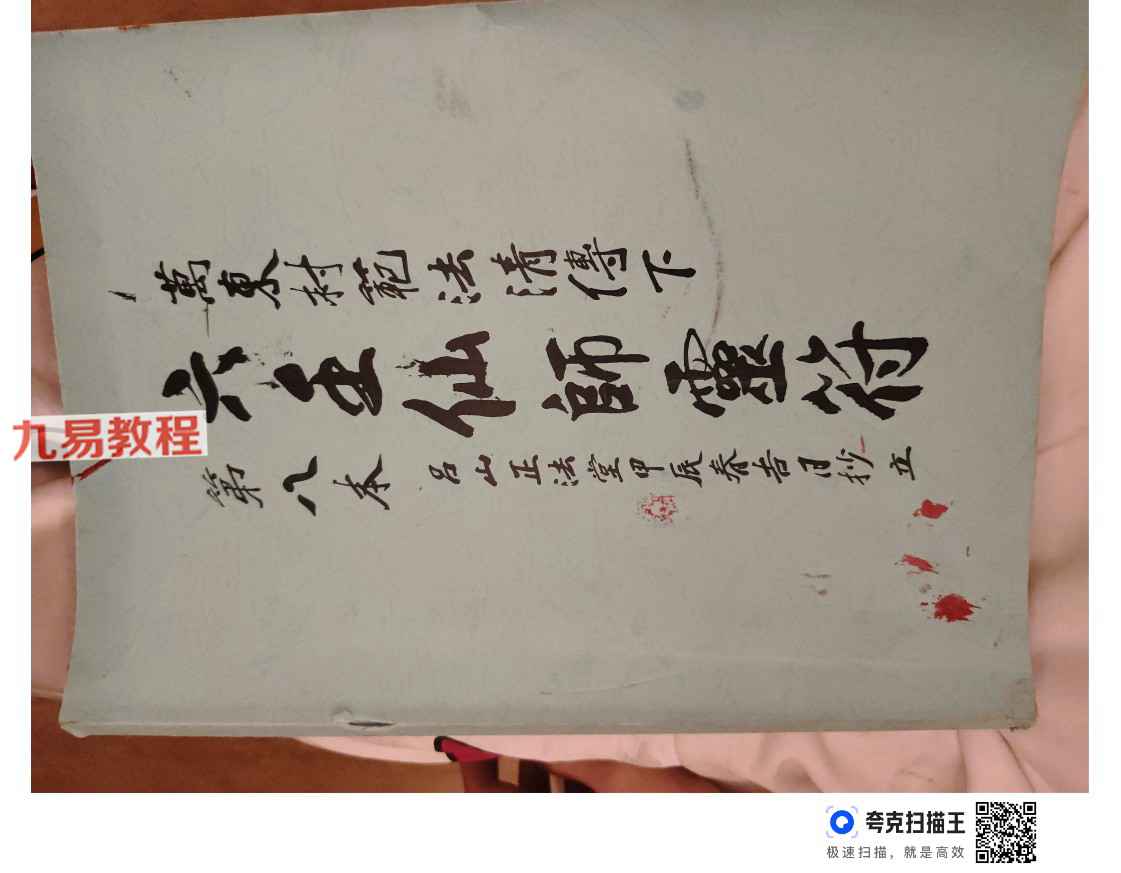 萬東村範法清傳下
六壬仙師靈符
第八本 吕山正法堂甲辰春吉日抄立
九易教程
夸克扫描王
极速扫描，就是高效